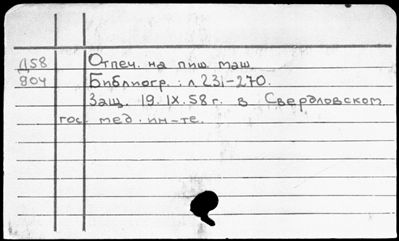 Д58 Отпеч. на пиш. маш.
904 Библиогр.: л. 231-270.
Защ. 19.IX.58 г. в Свердловском
гос. мед. ин-те.